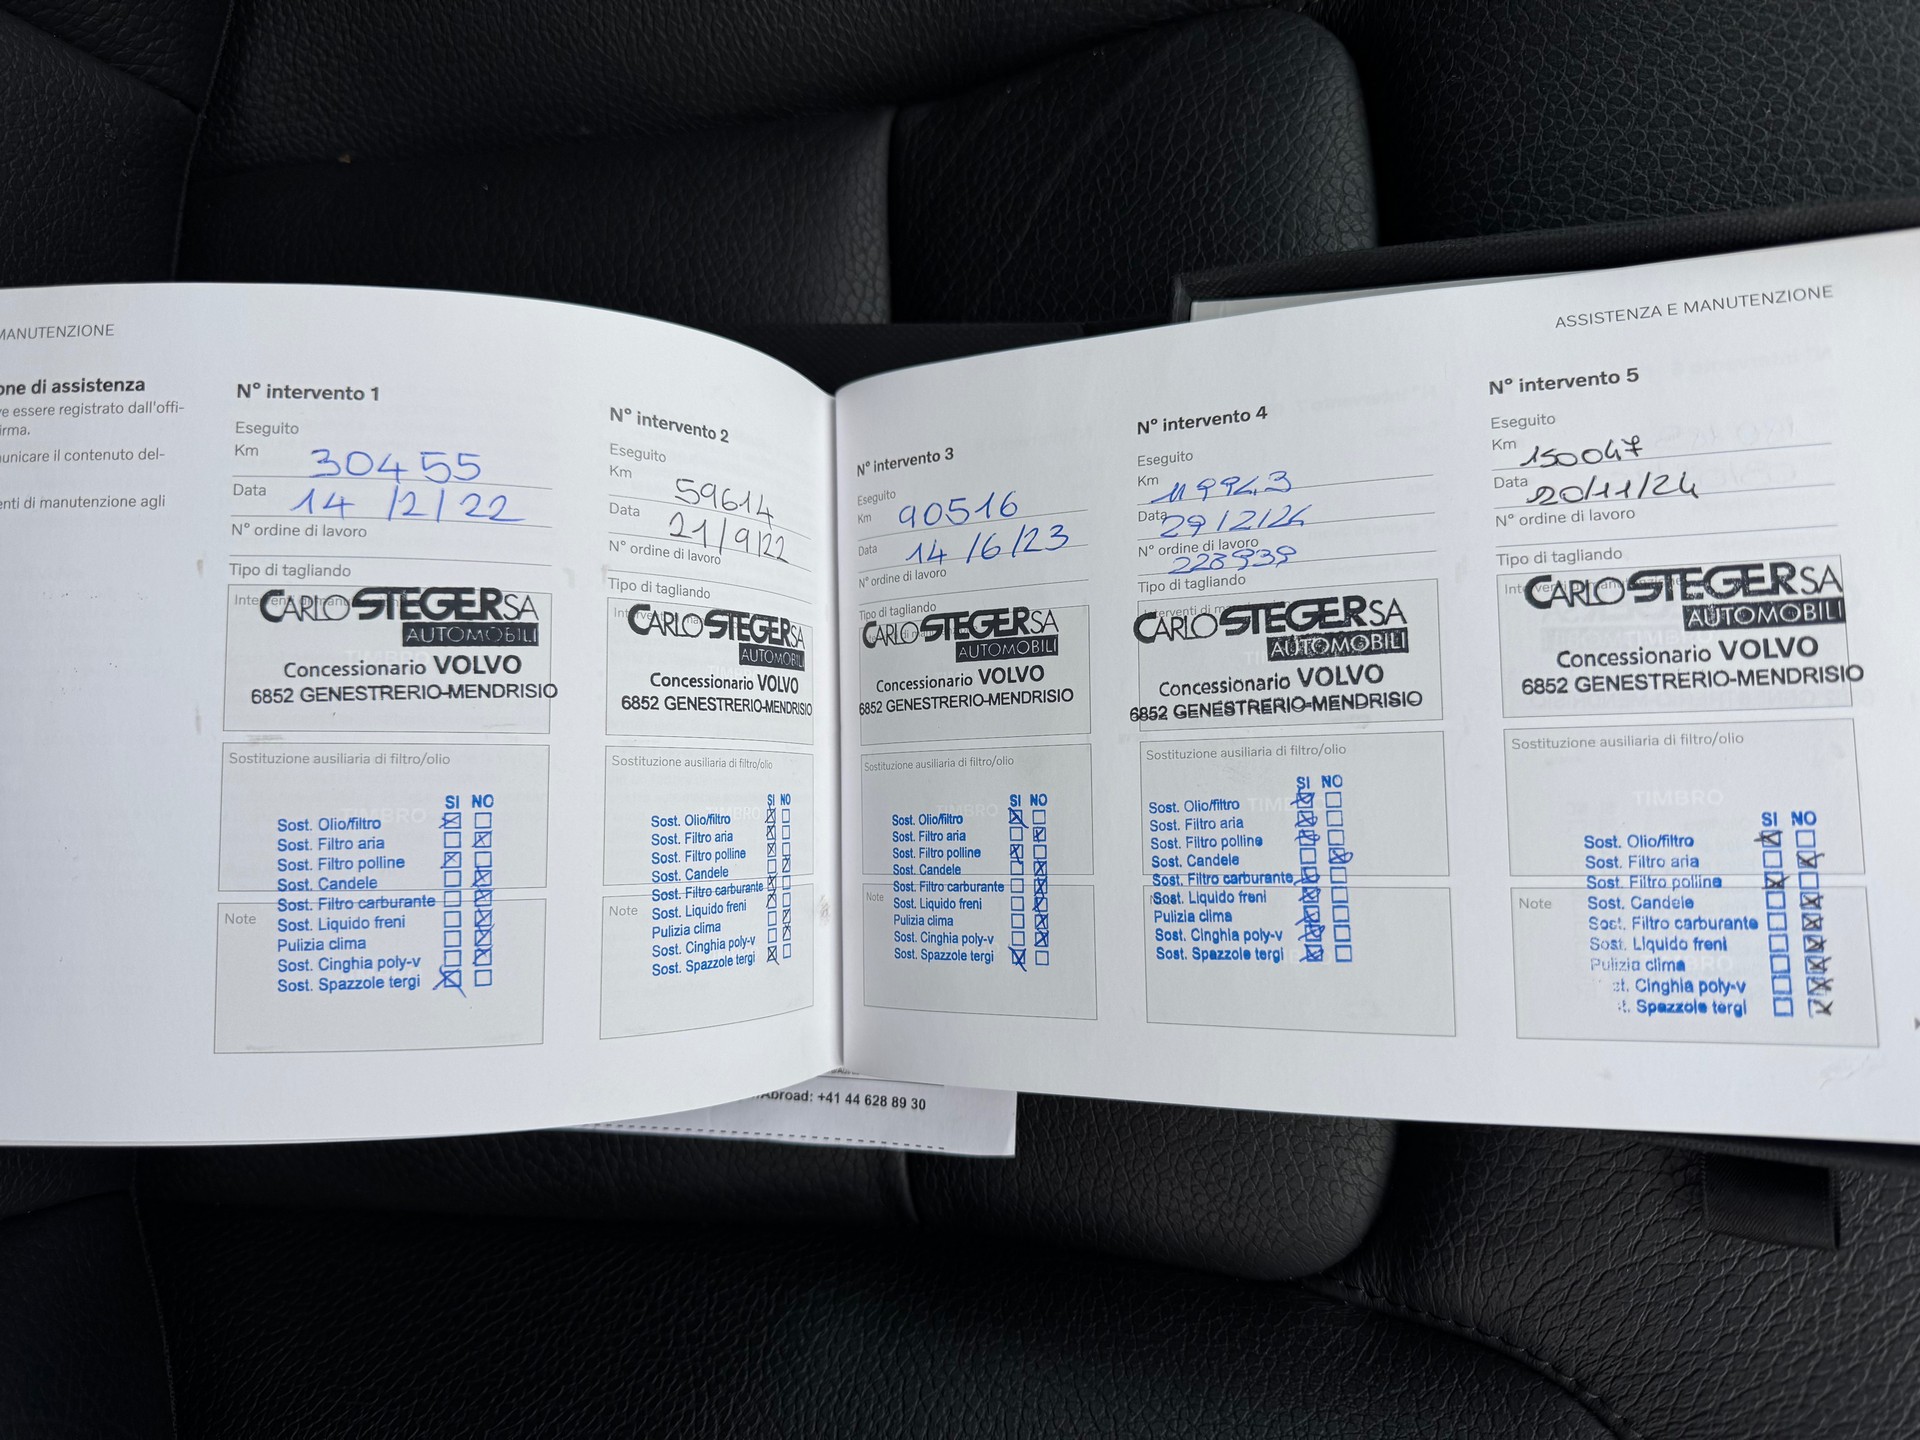 MANUTENZIONE
one di assistenza
ve essere registrato dall'offi-
irma.
unicare il contenuto del-
enti di manutenzione agli
N° intervento 1
Eseguito
Km 30455
Data 14/2/22
N° ordine di lavoro
Tipo di tagliando
CARLO STEGER SA
AUTOMOBILI
Concessionario VOLVO
6852 GENESTRERIO-MENDRISIO
Sostituzione ausiliaria di filtro/olio
TIMBRO
SI NO
Sost. Olio/filtro
Sost. Filtro aria
Sost. Filtro polline
Sost. Candele
Sost. Filtro carburante
Note
Sost. Liquido freni
Pulizia clima
Sost. Cinghia poly-v
Sost. Spazzole tergi
N° intervento 2
Eseguito
Km 59614
Data 21/9/22
N° ordine di lavoro
Tipo di tagliando
CARLO STEGER SA
AUTOMOBILI
Concessionario VOLVO
6852 GENESTRERIO-MENDRISIO
Sostituzione ausiliaria di filtro/olio
SI NO
Sost. Olio/filtro
Sost. Filtro aria
Sost. Filtro polline
Sost. Candele
Sost. Filtro carburante
Note
Sost. Liquido freni
Pulizia clima
Sost. Cinghia poly-v
Sost. Spazzole tergi
ASSISTENZA E MANUTENZIONE
N° intervento 3
Eseguito
Km 90516
Data 14/6/23
N° ordine di lavoro
Tipo di tagliando
CARLO STEGER SA
AUTOMOBILI
Concessionario VOLVO
6852 GENESTRERIO-MENDRISIO
Sostituzione ausiliaria di filtro/olio
TIMBRO
SI NO
Sost. Olio/filtro
Sost. Filtro aria
Sost. Filtro polline
Sost. Candele
Sost. Filtro carburante
Note
Sost. Liquido freni
Pulizia clima
Sost. Cinghia poly-v
Sost. Spazzole tergi
N° intervento 4
Eseguito
Km 119943
Data 29/2/24
N° ordine di lavoro
228939
Tipo di tagliando
CARLO STEGER SA
AUTOMOBILI
Concessionario VOLVO
6852 GENESTRERIO-MENDRISIO
Sostituzione ausiliaria di filtro/olio
SI NO
Sost. Olio/filtro
Sost. Filtro aria
Sost. Filtro polline
Sost. Candele
Sost. Filtro carburante
Sost. Liquido freni
Pulizia clima
Sost. Cinghia poly-v
Sost. Spazzole tergi
N° intervento 5
Eseguito
Km 150047
Data 20/11/24
N° ordine di lavoro
Tipo di tagliando
CARLO STEGER SA
AUTOMOBILI
Concessionario VOLVO
6852 GENESTRERIO-MENDRISIO
Sostituzione ausiliaria di filtro/olio
TIMBRO
SI NO
Sost. Olio/filtro
Sost. Filtro aria
Sost. Filtro polline
Note
Sost. Candele
Sost. Filtro carburante
Sost. Liquido freni
Pulizia clima
st. Cinghia poly-v
t. Spazzole tergi
Abroad: +41 44 628 89 30